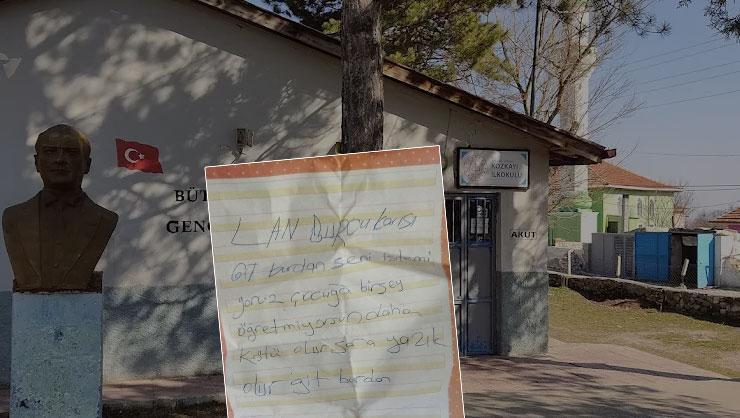 BÜT
GENÇ
KOZKAYI
İLKOKULU
AKUT
LAN Burçu karısı
Git burdan seni istemi
yoruz çocuğa birşey
öğretmiyorsun daha
Kötü olur sana yazık
olur git burdan